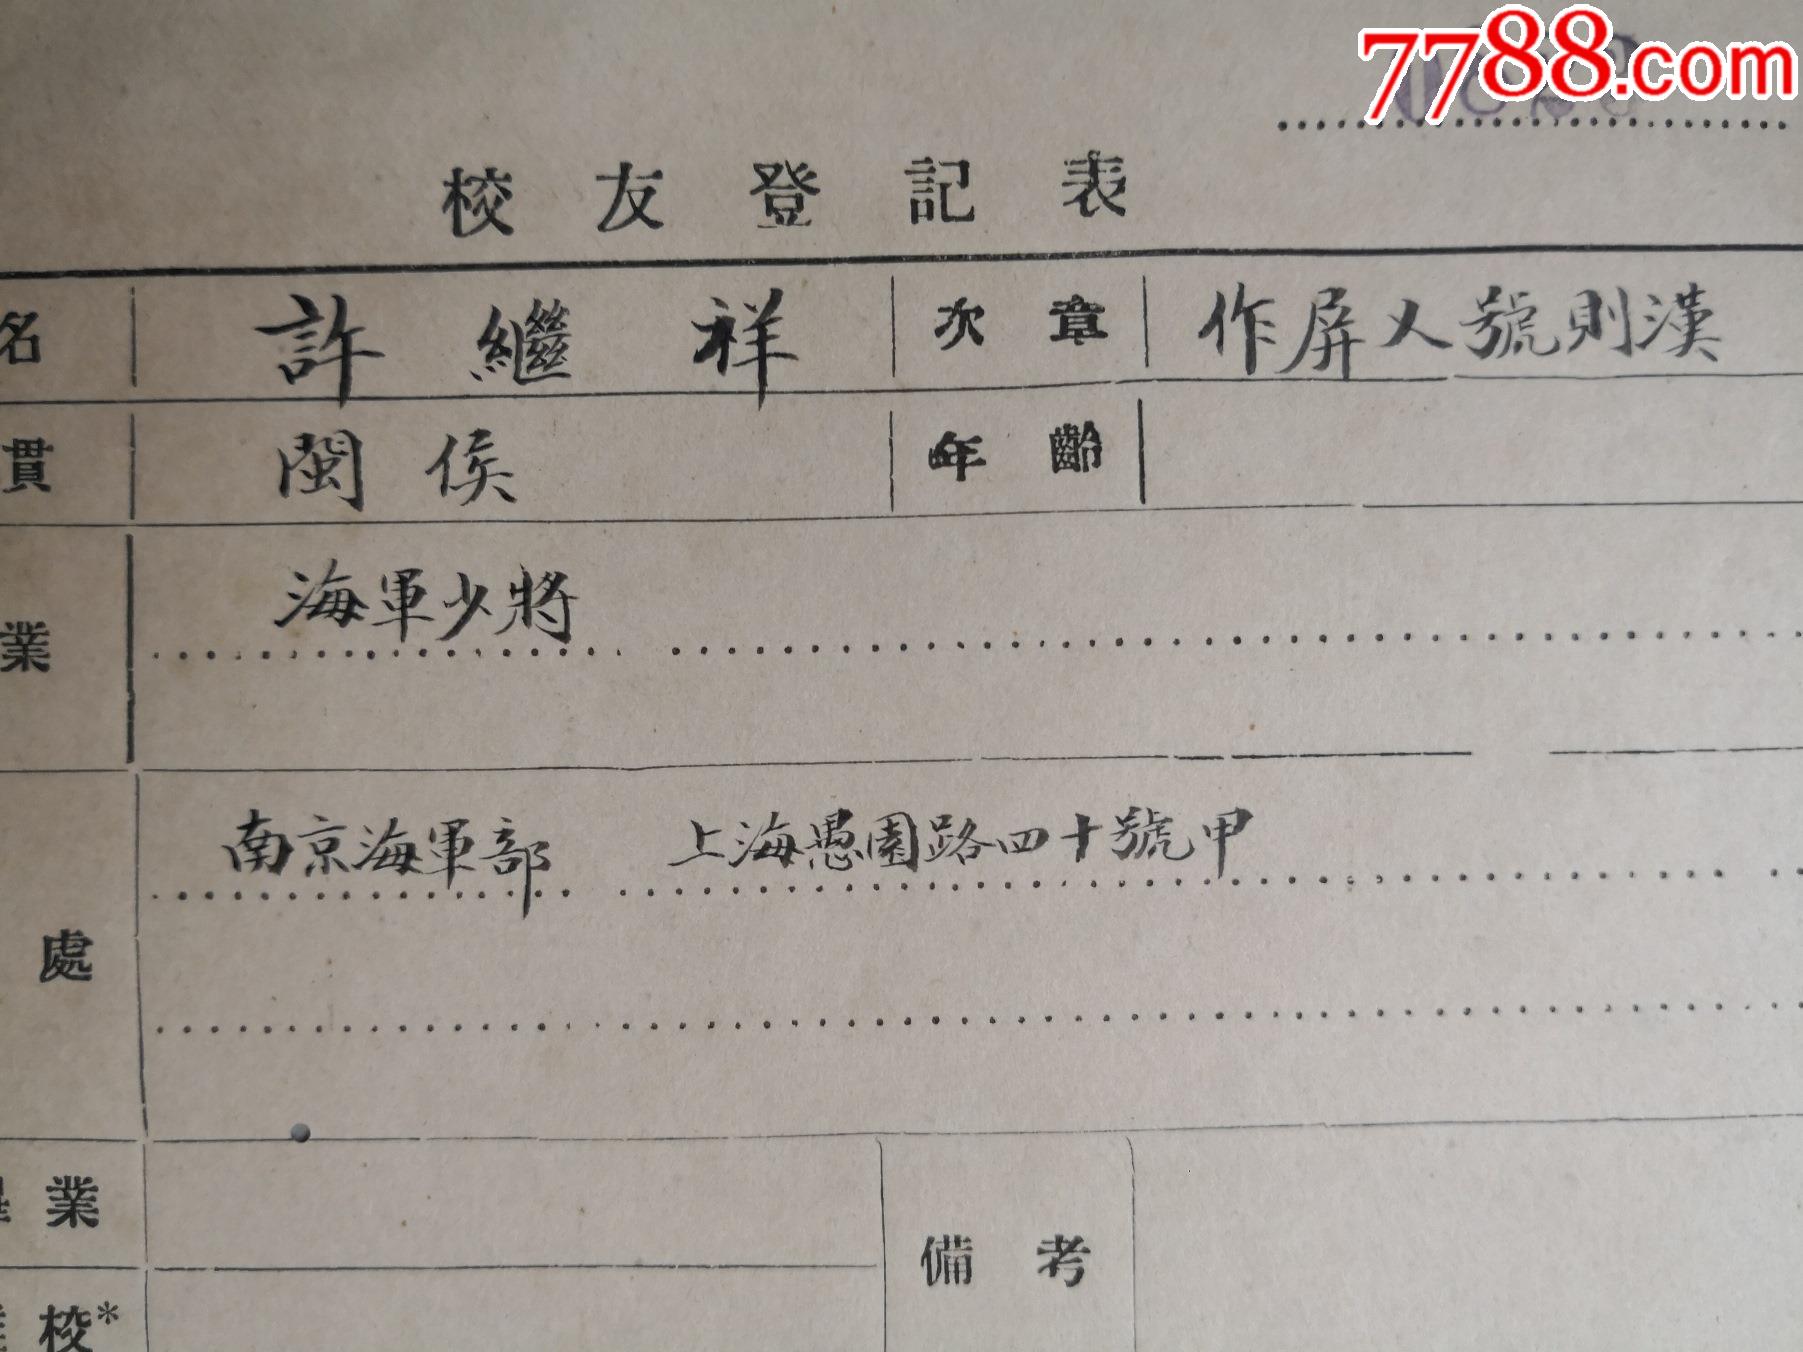 7788.com
校友登記表
名 許繼祥 次章 作屏又號則漢
貫 閩侯 年齡
業 海軍少將
南京海軍部 上海愚園路四十號甲
處
業
備考
校*